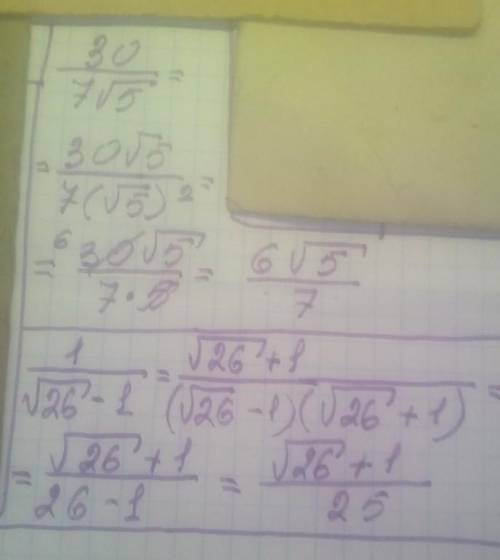 30/(7√5) =
= 30√5/(7(√5)²) =
= ⁶30√5/(7·5) = 6√5/7
1/(√26 - 1) = (√26 + 1)/((√26 - 1)(√26 + 1)) =
= (√26 + 1)/(26 - 1) = (√26 + 1)/25